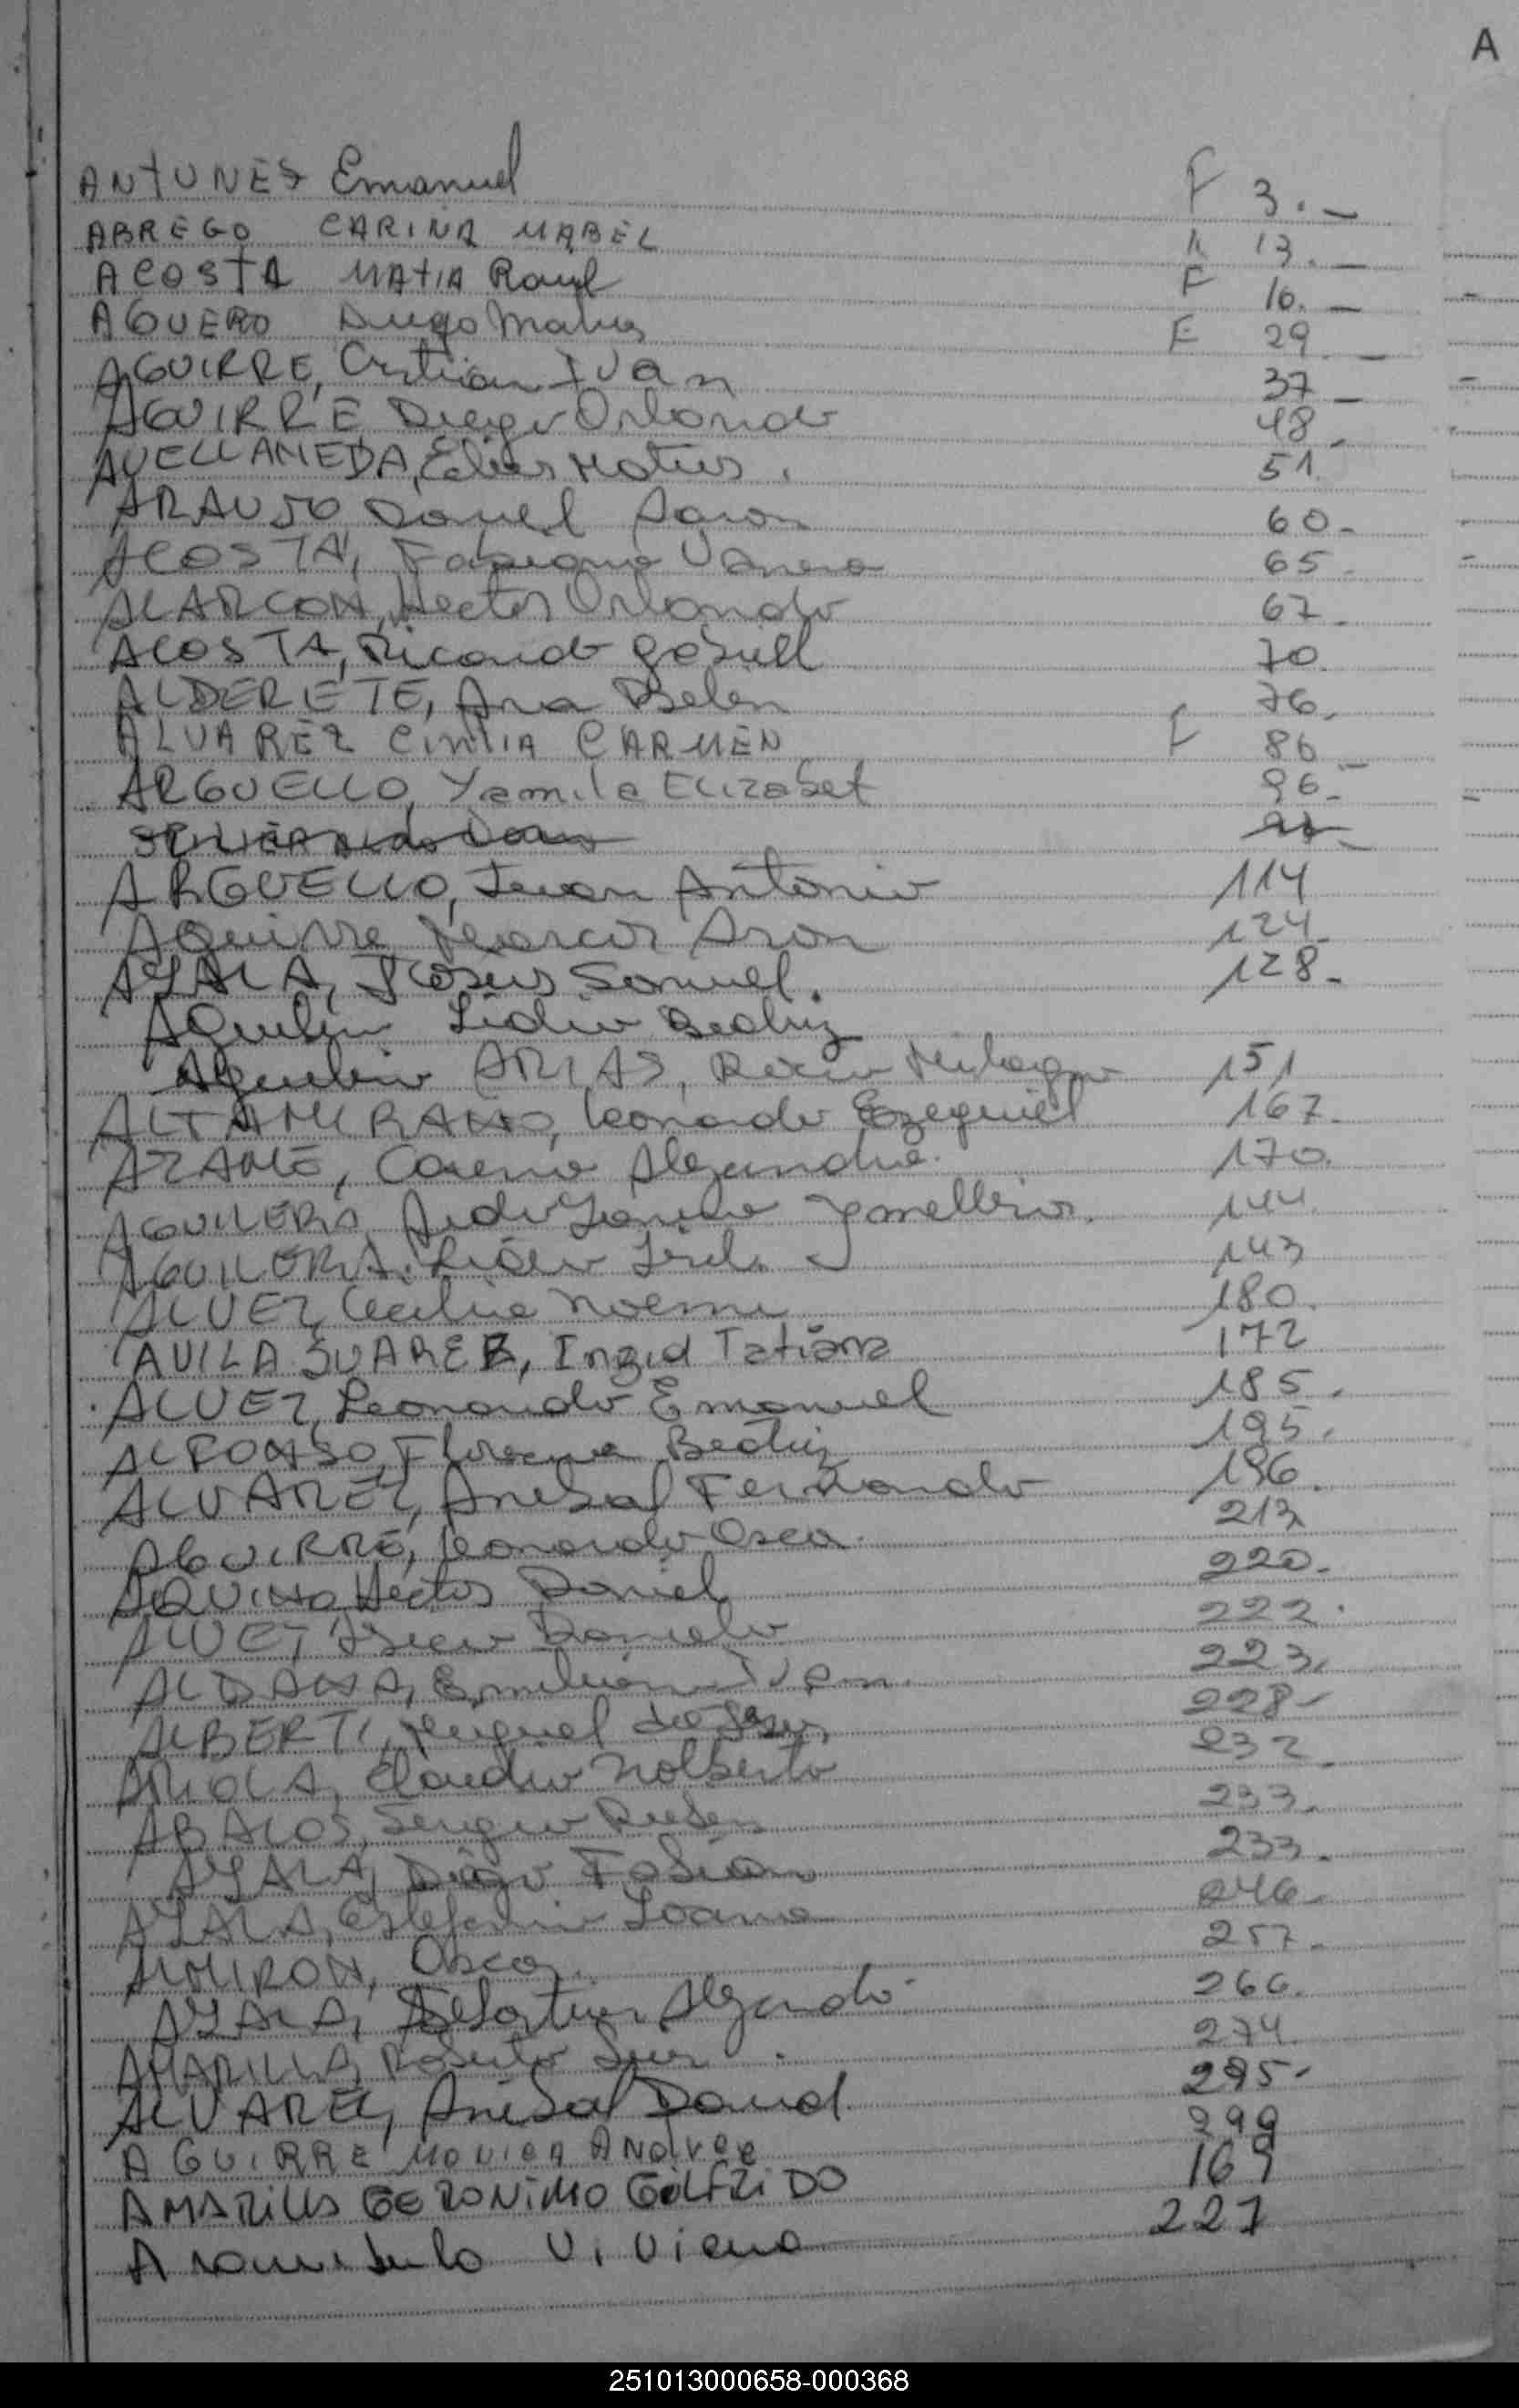 A
ANTUNES Emanuel F 3. —
ABREGO CARINA MABEL 13. —
ACOSTA MATIA Raul F 10. —
AGUERO Diego Matias F 29 —
AGUIRRE, Cristian IVan 37 —
AGUIRRE Diego Orlando 48 -
AVELLANEDA, Elias Matias. 51.
ARAUJO Daniel Aaron 60-
ACOSTA, Fabiana Vanesa 65-
ALARCON, Hector Orlando 67-
ACOSTA, Ricardo 70
ALDERETE, Ana Belen 76.
ALVAREZ CINTIA CARMEN F 86 —
ARGUELLO, Yamila Elizabet 96-
ARGUELLO, Juan Antonio 114
Aguirre Marcos Aron 124
AYALA, Jesus Samuel. 128-
Lidia Beatriz
ARIAS, Rocio Milagro 151
ALTAMIRANO, Leonardo Ezequiel 167-
Carena Alejandra. 170.
AGUILERA 144
AGUILERA. Lidia 143
ALVEZ, Cecilia Noemi 180.
AVILA SUAREZ, Ingrid Tatiana 172
ALVEZ, Leonardo Emanuel 185.
ALFONSO, Florencia Beatriz 195.
ALVAREZ, Anibal Fernando 196.
AGUIRRE, Leonardo Oscar. 213
AQUINO Hector Daniel 220-
ALVEZ, 222.
ALDANA, Emiliano Ivan. 223.
ALBERTI, Miguel de Jesus 228-
ARIOLA, Claudio Nolberto 232
ABALOS, Sergio Ruben 233.
AYALA, Diego Fabian 233.
AYALA, Estefania Joana 246-
ALMIRON, Oscar. 257-
AYALA, Alejandro 266.
AMARILLA, Roberto Luis 274.
ALVAREZ, Anibal David 295-
AGUIRRE MONICA ANdrea 299
AMARILLA GERONIMO GILFRIDO 169
Viviana 227
251013000658-000368